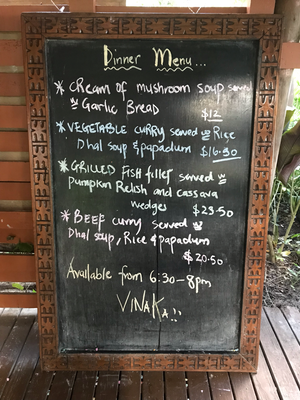 Dinner Menu...
* CREAM OF MUSHROOM SOUP served
w GARLIC BREAD
$12
* VEGETABLE CURRY served w Rice
Dhal soup & papadum $16.50
* GRILLED FISH fillet served w
Pumpkin Relish and cassava
wedges $23.50
* BEEF curry served w
Dhal soup, Rice & papadum
$20.50
Available from 6:30-8pm
VINAKA!!